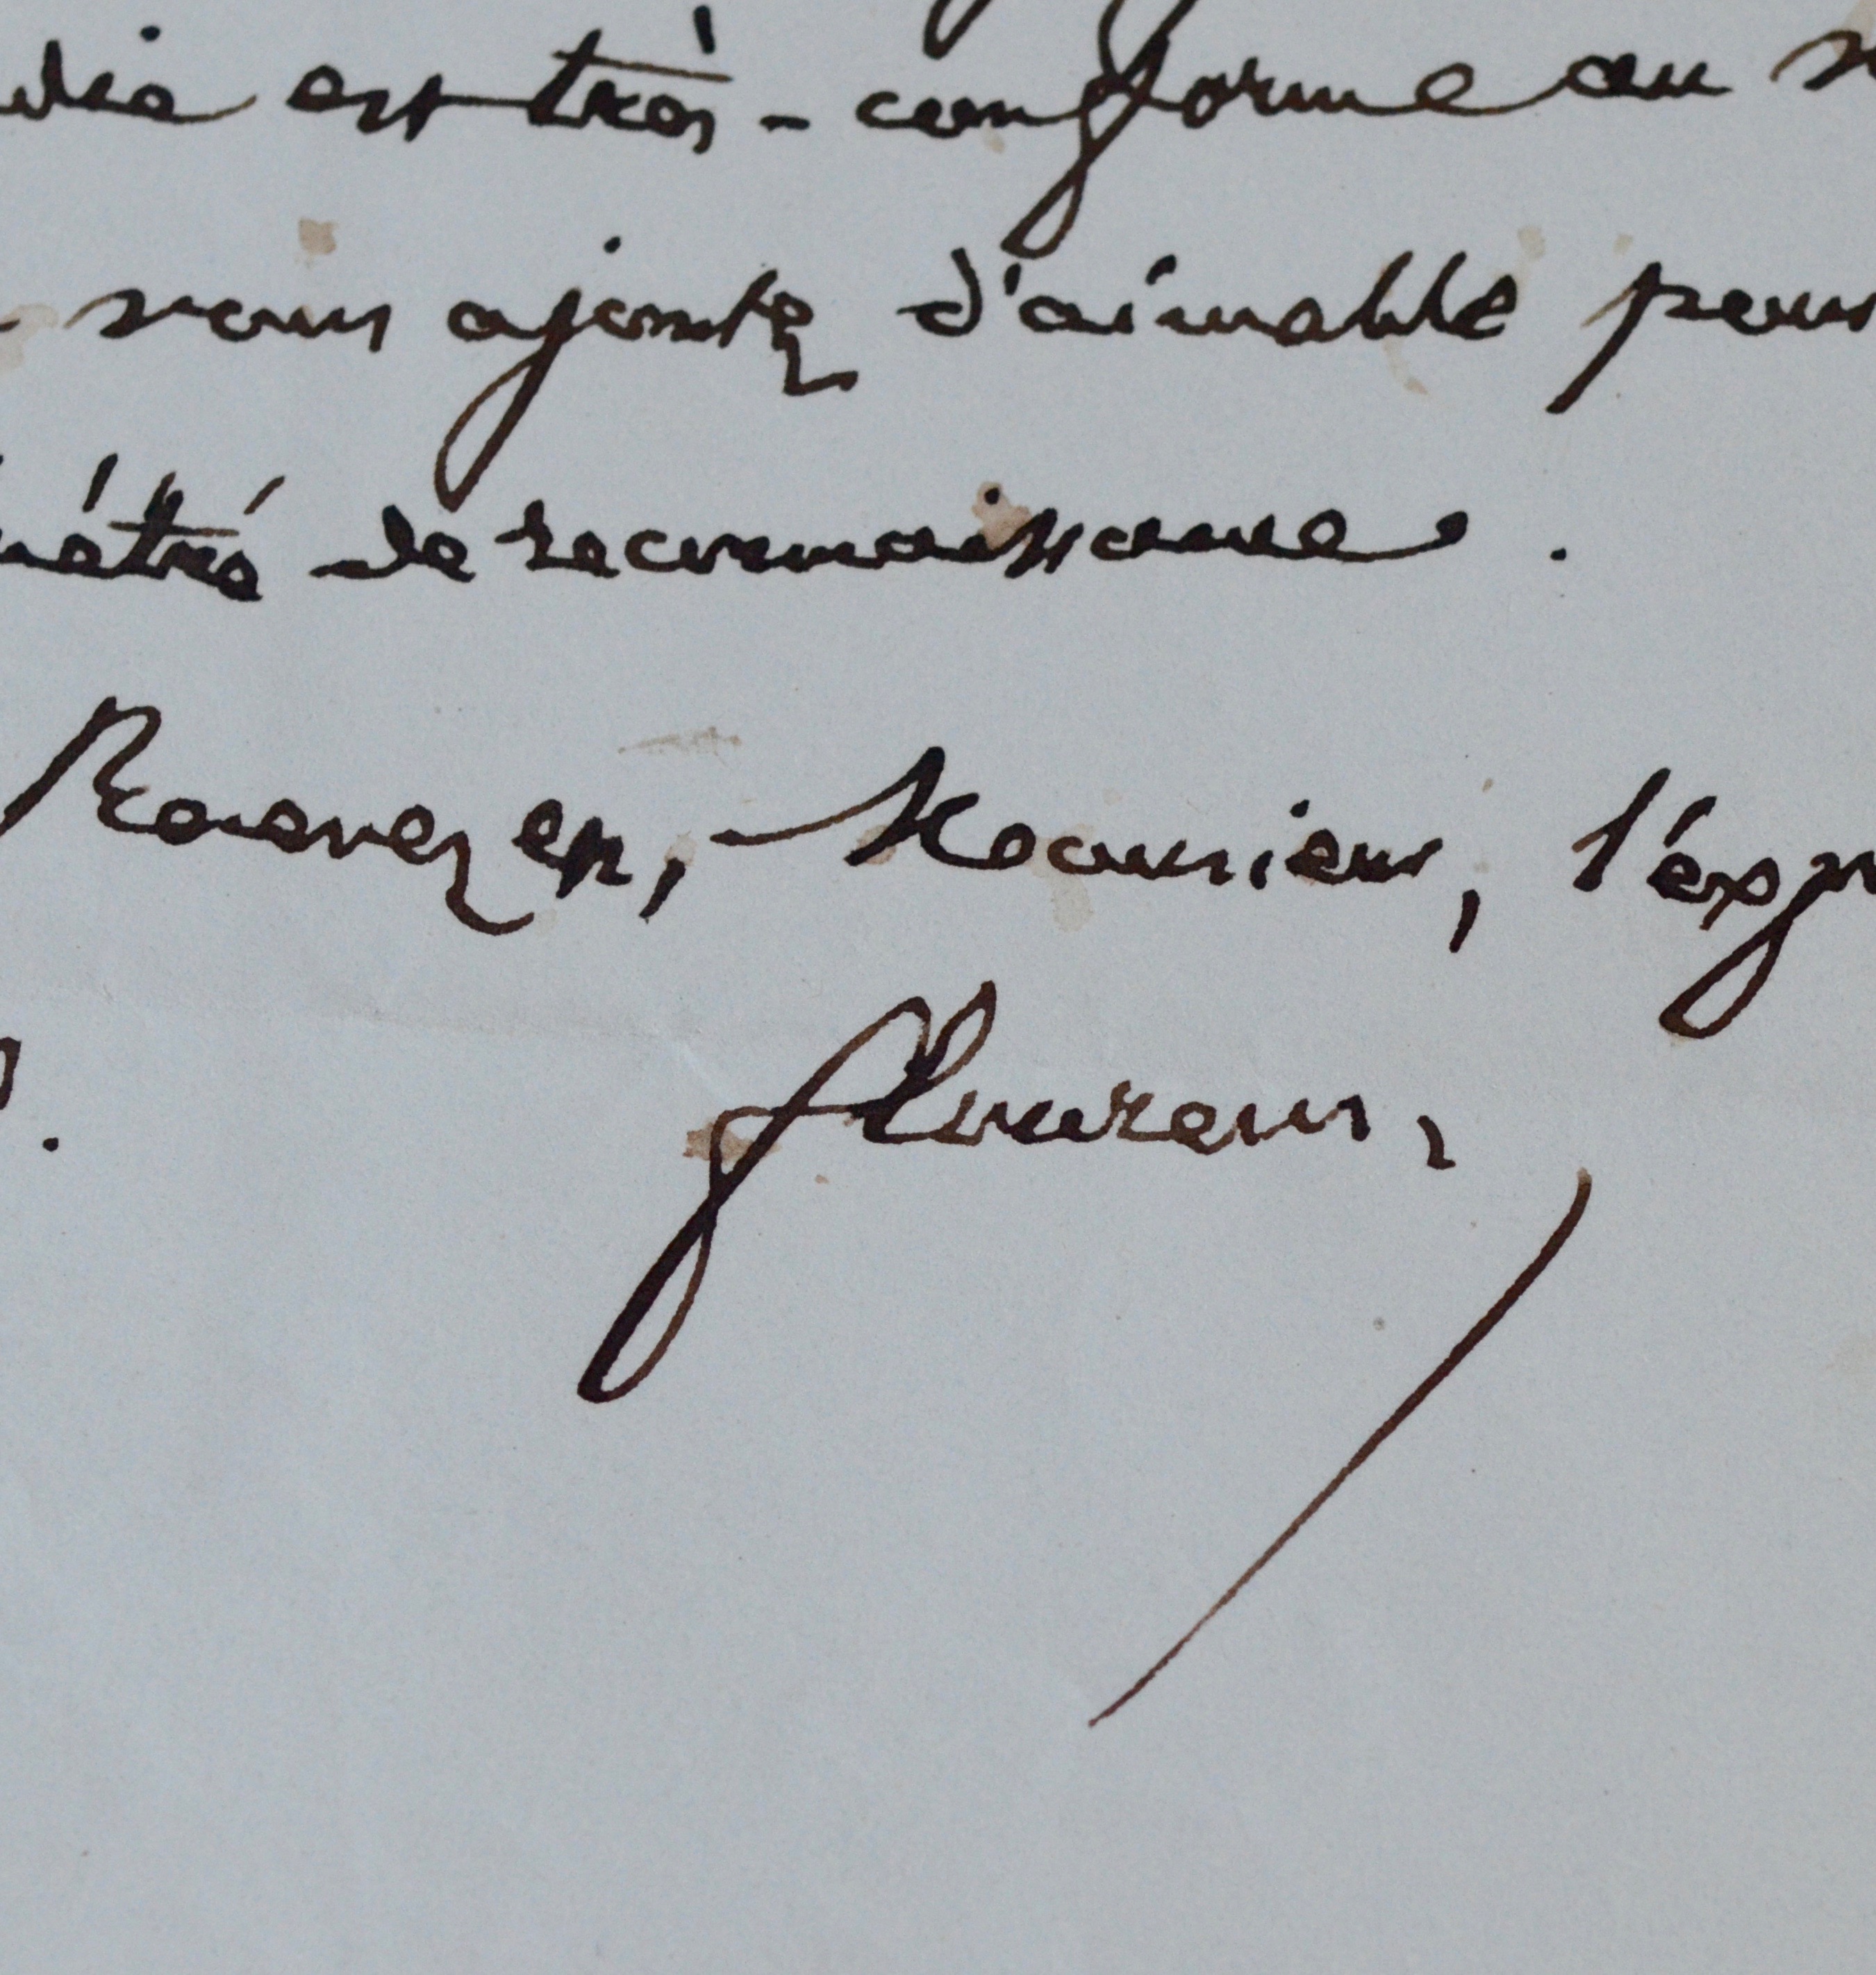 die est très-conforme au
vous ajoutez d'aimable pour
nétré de reconnaissance.
Recevez en, Monsieur, l'exp
flourens,